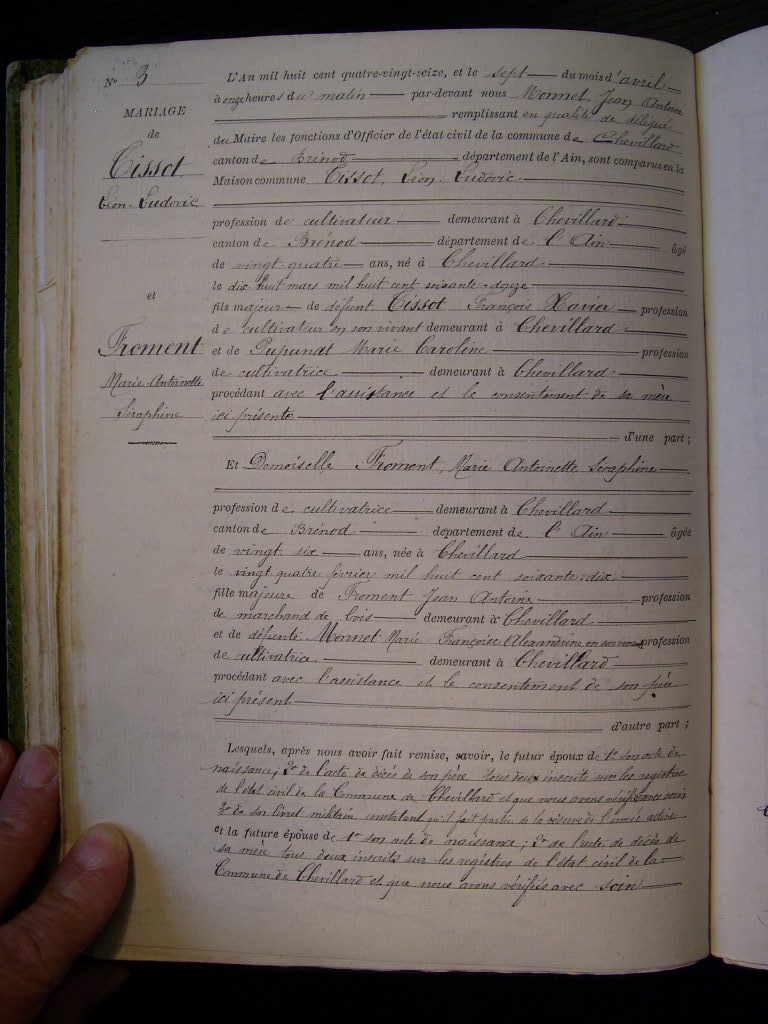 N° 3
MARIAGE
de
Tissot
Léon-Ludovic
et
Froment
Marie-Antoinette
Séraphine
L'An mil huit cent quatre-vingt-seize, et le sept du mois d'avril
à onze heures du matin par-devant nous Monnet, Jean Antoine
remplissant en qualité de délégué
du Maire les fonctions d'Officier de l'état civil de la commune de Chevillard
canton de Brénod département de l'Ain, sont comparus en la
Maison commune Tissot, Léon-Ludovic
profession de cultivateur demeurant à Chevillard
canton de Brénod département de l'Ain âgé
de vingt quatre ans, né à Chevillard
le dix huit mars mil huit cent soixante-douze
fils majeur de défunt Tissot François Xavier profession
de cultivateur en son vivant demeurant à Chevillard
et de Pupunat Marie Caroline profession
de cultivatrice demeurant à Chevillard
procédant avec l'assistance et le consentement de sa mère
ici présente
d'une part ;
Et Demoiselle Froment, Marie Antoinette Séraphine
profession de cultivatrice demeurant à Chevillard
canton de Brénod département de l'Ain âgée
de vingt six ans, née à Chevillard
le vingt quatre février mil huit cent soixante-dix
fille majeure de Froment Jean Antoine profession
de marchand de bois demeurant à Chevillard
et de défunte Monnet Marie Françoise Alexandrine en son vivant profession
de cultivatrice demeurant à Chevillard
procédant avec l'assistance et le consentement de son père
ici présent
d'autre part ;
Lesquels, après nous avoir fait remise, savoir, le futur époux de 1° son acte de
naissance ; 2° de l'acte de décès de son père tous deux inscrits sur les registres
de l'état civil de la Commune de Chevillard et que nous avons vérifiés avec soin
3° de son livret militaire constatant qu'il fait partie de la réserve de l'armée active
et la future épouse de 1° son acte de naissance ; 2° de l'acte de décès de
sa mère tous deux inscrits sur les registres de l'état civil de la
Commune de Chevillard et que nous avons vérifiés avec soin